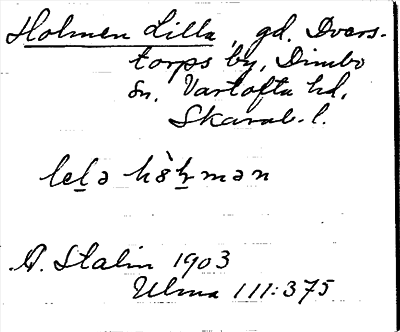 Holmen Lilla, gd. Dvers-
torps by, Dimbo
sn. Vartofta hd.
Skarab. l.
lel̠ə hòl̠mən
A. Stalin 1903
Ulma 111:375